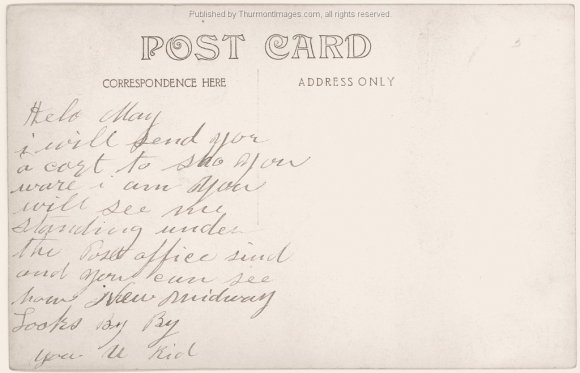 Published by ThurmontImages.com, all rights reserved.
POST CARD
CORRESPONDENCE HERE
ADDRESS ONLY
Helo May
i will send yor
a cort to sho you
ware i am you
will see me
standing under
the Post office sind
and you can see
how New midway
Looks By By
you U Kid